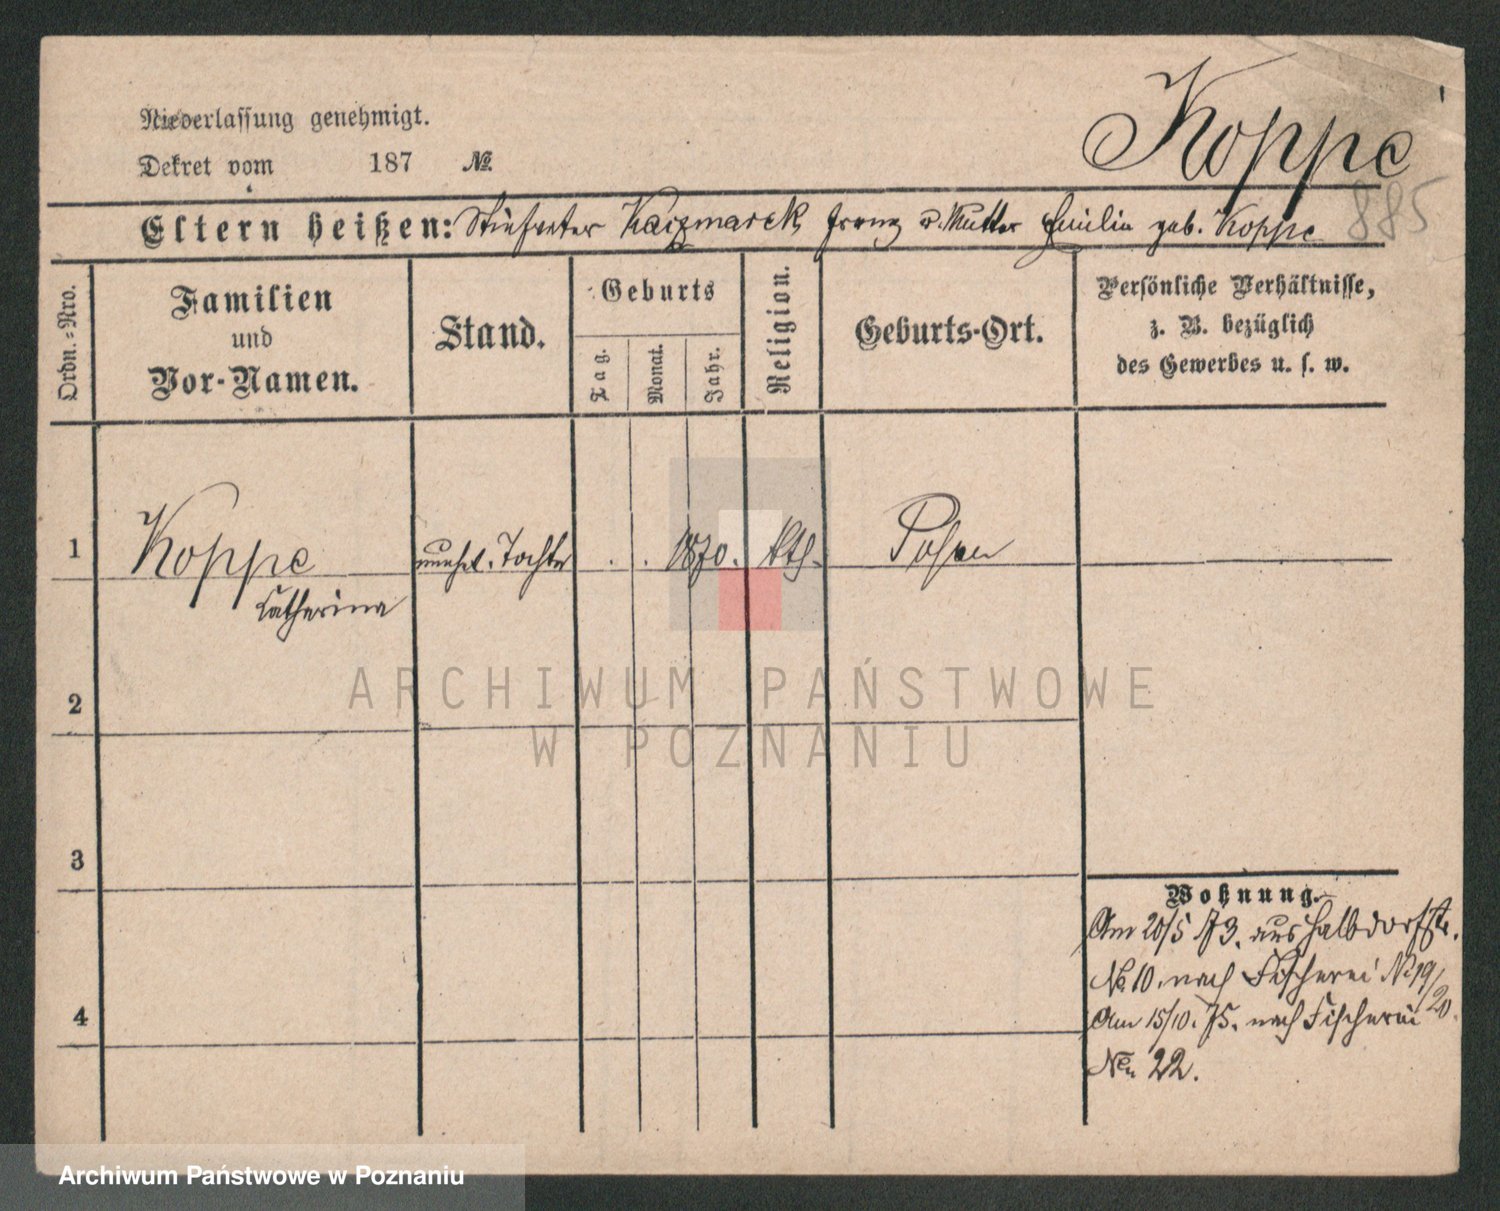 Niederlassung genehmigt.
Dekret vom 187 №
Koppe
885
Eltern heißen: Stiefvater Kaczmarek Franz u. Mutter Emilie geb. Koppe
Ordn.-Nro.
Familien
und
Vor-Namen.
Stand.
Geburts
Tag.
Monat.
Jahr.
Religion.
Geburts-Ort.
Persönliche Verhältnisse,
z. B. bezüglich
des Gewerbes u. s. w.
1 Koppe unehel. Tochter . . 1870. kth. Posen
Catharina
2
3
4
Wohnung.
Am 20/5 73. aus Halbdorfstr.
No 10. nach Fischerei No 19/20.
Am 15/10. 75. nach Fischerei
No 22.
ARCHIWUM PAŃSTWOWE
W POZNANIU
Archiwum Państwowe w Poznaniu